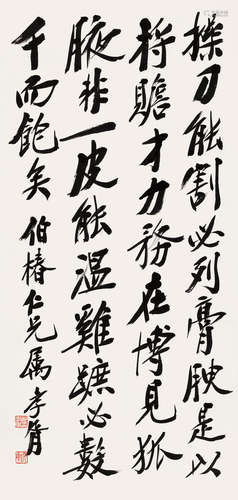 操刀能割必列膏腴是以
将贍才力務在博見狐
腋非一皮能溫雞蹠必數
千而飽矣 伯椿仁兄属 孝胥